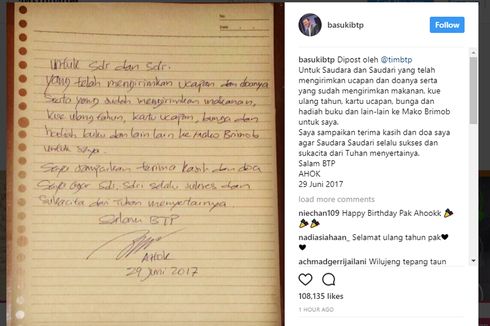 No.
Date
Untuk Sdr dan Sdri.
yang telah mengirimkan ucapan dan doanya
Serta yang sudah mengirimkan makanan,
kue ulang tahun, kartu ucapan, bunga dan
hadiah buku dan lain lain ke Mako Brimob
untuk saya.
Saya sampaikan terima kasih dan doa
Saya agar Sdr, Sdri selalu sukses dan
Sukacita dari Tuhan menyertainya
Salam BTP
AHOK
29 Juni 2017
basukibtp
Follow
basukibtp Dipost oleh @timbtp
Untuk Saudara dan Saudari yang telah
mengirimkan ucapan dan doanya serta
yang sudah mengirimkan makanan. kue
ulang tahun, kartu ucapan, bunga dan
hadiah buku dan lain-lain ke Mako Brimob
untuk saya.
Saya sampaikan terima kasih dan doa saya
agar Saudara Saudari selalu sukses dan
sukacita dari Tuhan menyertainya.
Salam BTP
AHOK
29 Juni 2017
load more comments
niechan109 Happy Birthday Pak Ahookk
nadiasiahaan_ Selamat ulang tahun pak
achmadgerrijailani Wilujeng tepang taun
108,135 likes
1 HOUR AGO